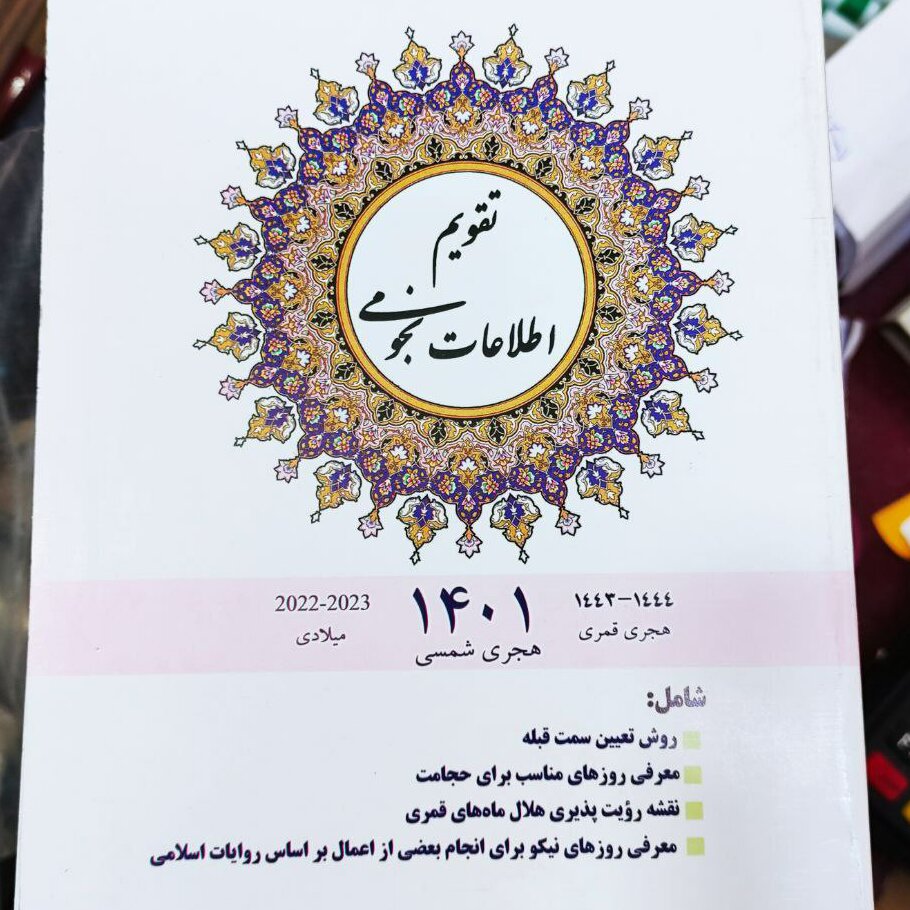 تقویم
اطلاعات نجومی
۱٤٤۳-۱٤٤٤
هجری قمری
۱۴۰۱
هجری شمسی
2022-2023
میلادی
شامل:
روش تعیین سمت قبله
معرفی روزهای مناسب برای حجامت
نقشه رؤیت پذیری هلال ماه‌های قمری
معرفی روزهای نیکو برای انجام بعضی از اعمال بر اساس روایات اسلامی